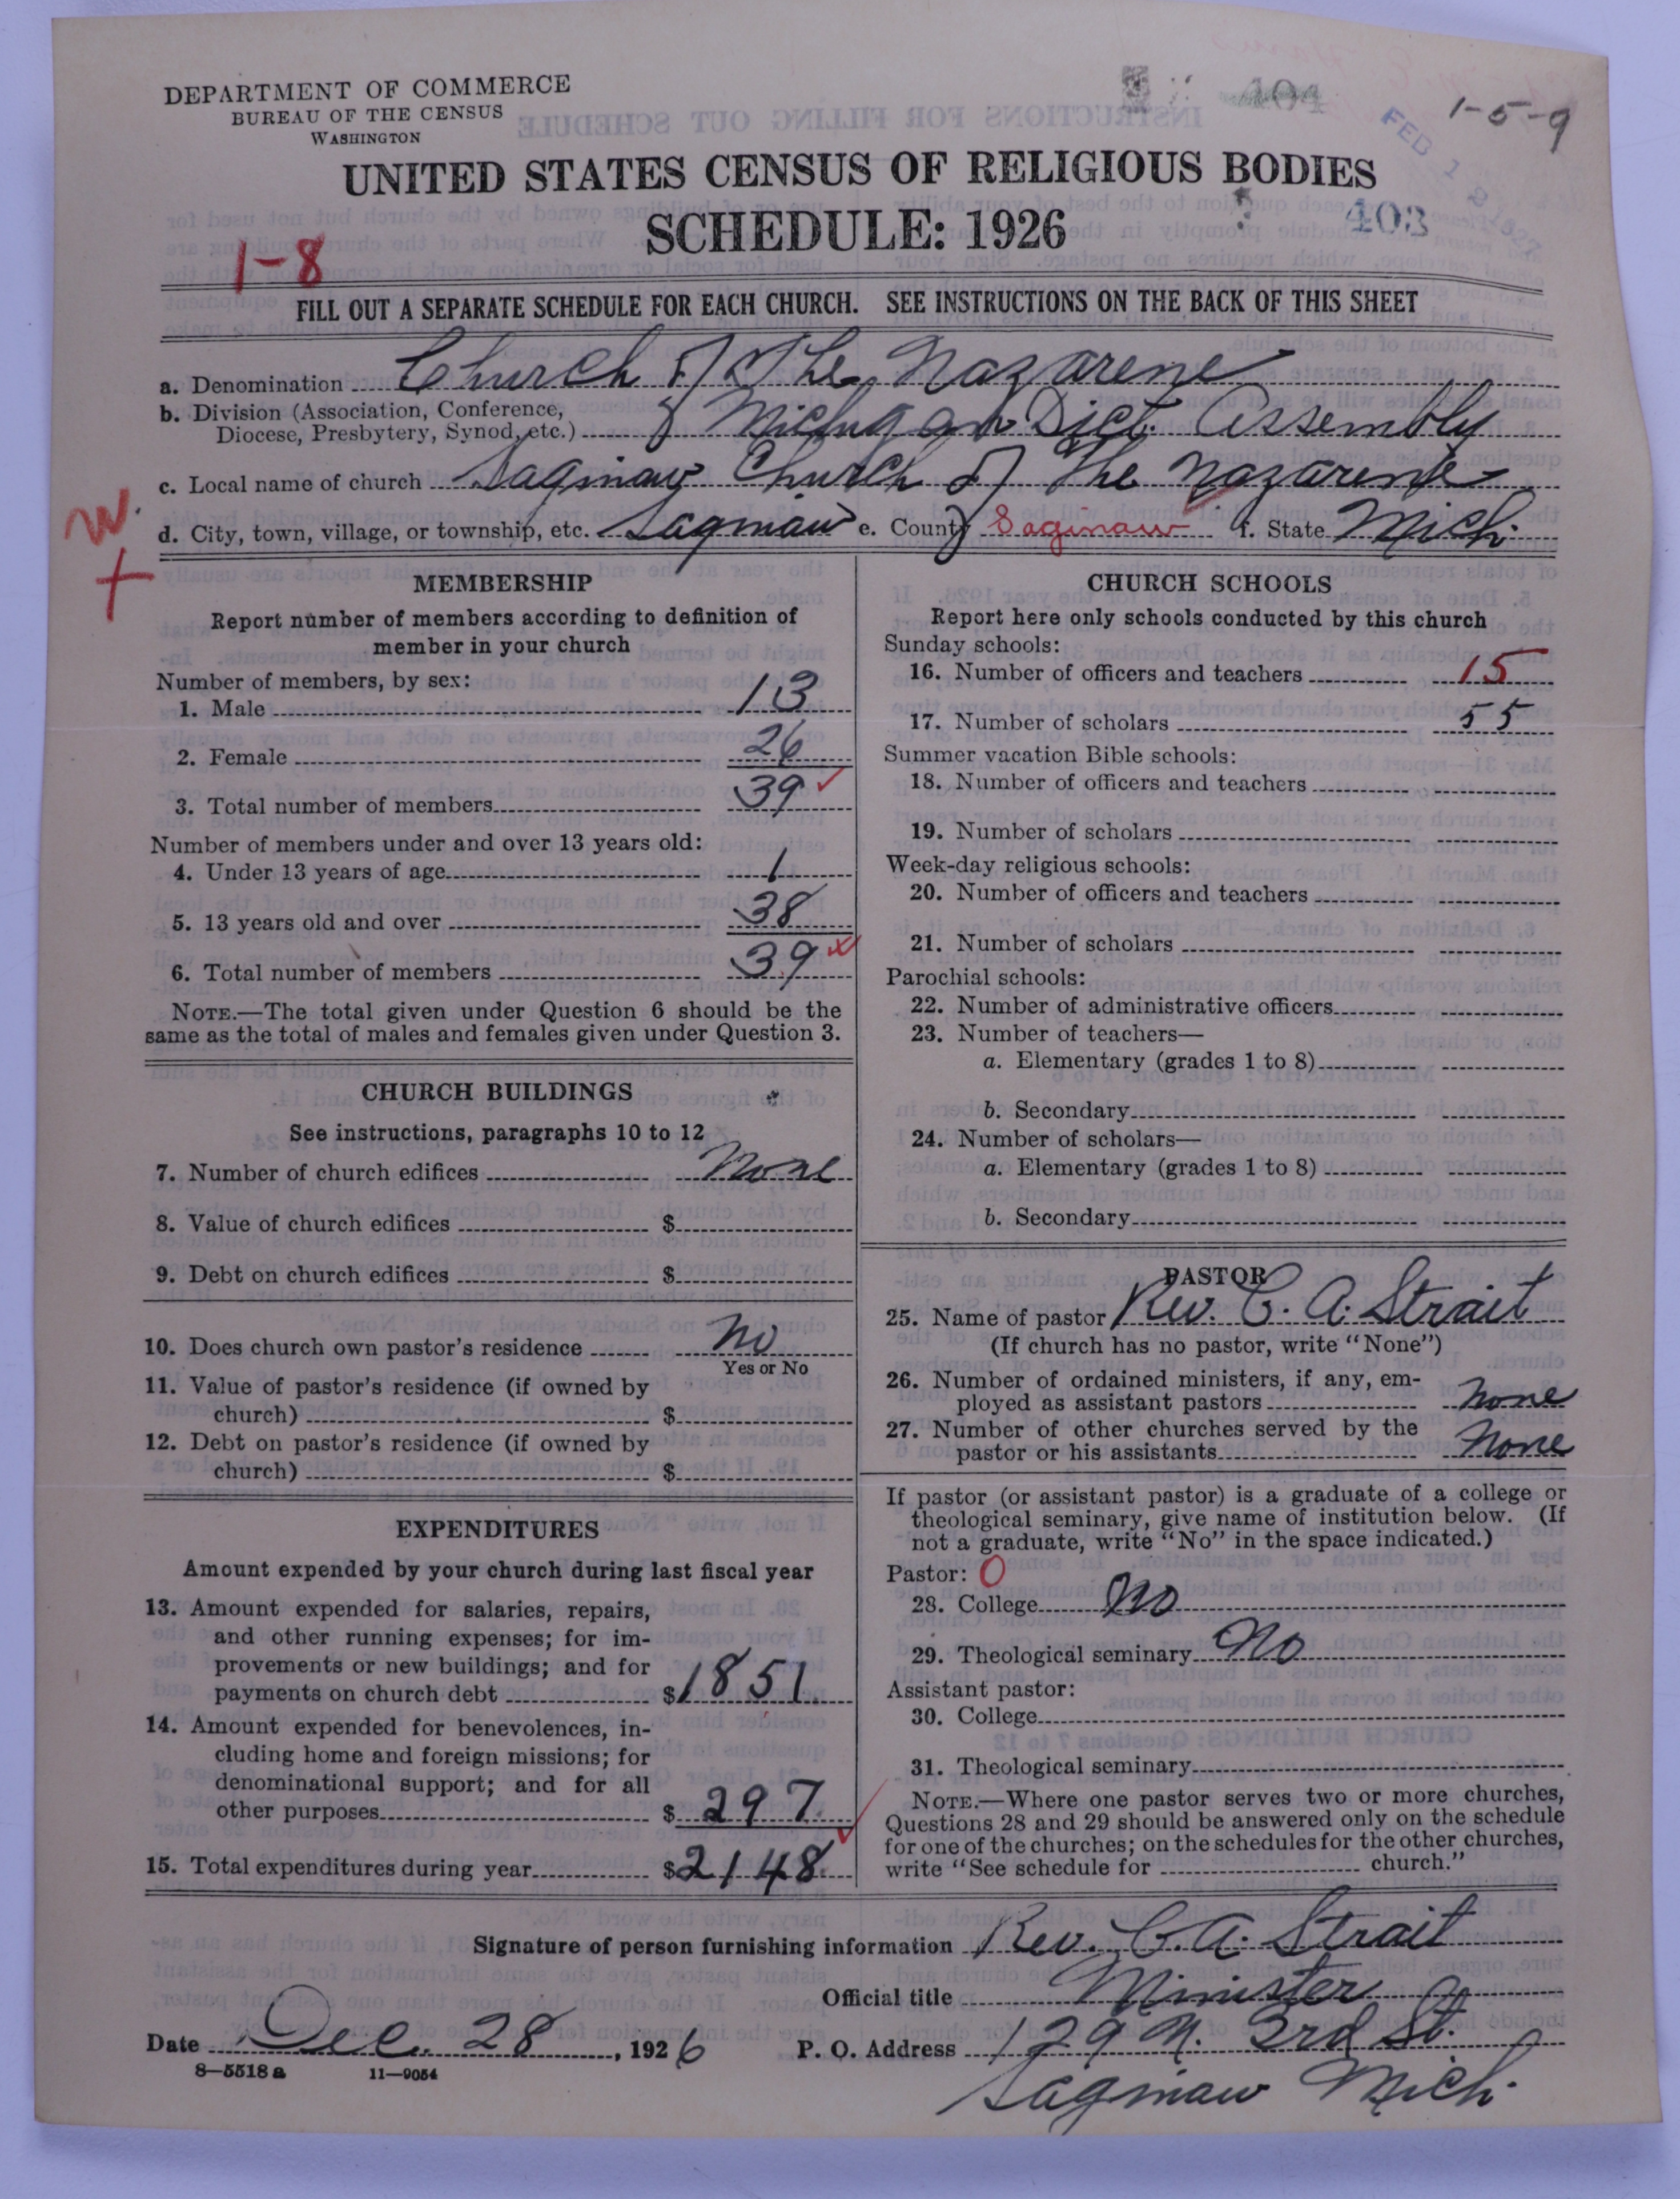 DEPARTMENT OF COMMERCE
BUREAU OF THE CENSUS
WASHINGTON
104
1-5-9
UNITED STATES CENSUS OF RELIGIOUS BODIES
SCHEDULE: 1926
403
1-8
FILL OUT A SEPARATE SCHEDULE FOR EACH CHURCH. SEE INSTRUCTIONS ON THE BACK OF THIS SHEET
a. Denomination Church of The Nazarene
b. Division (Association, Conference,
Diocese, Presbytery, Synod, etc.) Michigan Dict. Assembly
c. Local name of church Saginaw Church of The Nazarene
W.
d. City, town, village, or township, etc. Saginaw e. County Saginaw f. State Mich.
+
MEMBERSHIP
Report number of members according to definition of
member in your church
Number of members, by sex:
1. Male 13
2. Female 26
3. Total number of members 39 ✓
Number of members under and over 13 years old:
4. Under 13 years of age 1
5. 13 years old and over 38
6. Total number of members 39
NOTE.—The total given under Question 6 should be the
same as the total of males and females given under Question 3.
CHURCH BUILDINGS
See instructions, paragraphs 10 to 12
7. Number of church edifices None
8. Value of church edifices $
9. Debt on church edifices $
10. Does church own pastor's residence No
Yes or No
11. Value of pastor's residence (if owned by
church) $
12. Debt on pastor's residence (if owned by
church) $
EXPENDITURES
Amount expended by your church during last fiscal year
13. Amount expended for salaries, repairs,
and other running expenses; for im-
provements or new buildings; and for
payments on church debt $1851.
14. Amount expended for benevolences, in-
cluding home and foreign missions; for
denominational support; and for all
other purposes $297.
15. Total expenditures during year $2148. ✓
CHURCH SCHOOLS
Report here only schools conducted by this church
Sunday schools:
16. Number of officers and teachers 15
17. Number of scholars 55
Summer vacation Bible schools:
18. Number of officers and teachers
19. Number of scholars
Week-day religious schools:
20. Number of officers and teachers
21. Number of scholars
Parochial schools:
22. Number of administrative officers
23. Number of teachers—
a. Elementary (grades 1 to 8)
b. Secondary
24. Number of scholars—
a. Elementary (grades 1 to 8)
b. Secondary
PASTOR
25. Name of pastor Rev. C. A. Strait
(If church has no pastor, write "None")
26. Number of ordained ministers, if any, em-
ployed as assistant pastors None
27. Number of other churches served by the
pastor or his assistants None
If pastor (or assistant pastor) is a graduate of a college or
theological seminary, give name of institution below. (If
not a graduate, write "No" in the space indicated.)
Pastor: 0
28. College No
29. Theological seminary No
Assistant pastor:
30. College
31. Theological seminary
NOTE.—Where one pastor serves two or more churches,
Questions 28 and 29 should be answered only on the schedule
for one of the churches; on the schedules for the other churches,
write "See schedule for church."
Signature of person furnishing information Rev. C. A. Strait
Official title Minister
Date Dec. 28, 1926 P. O. Address 129 N. 3rd St.
8—5518a 11—9054
Saginaw Mich.